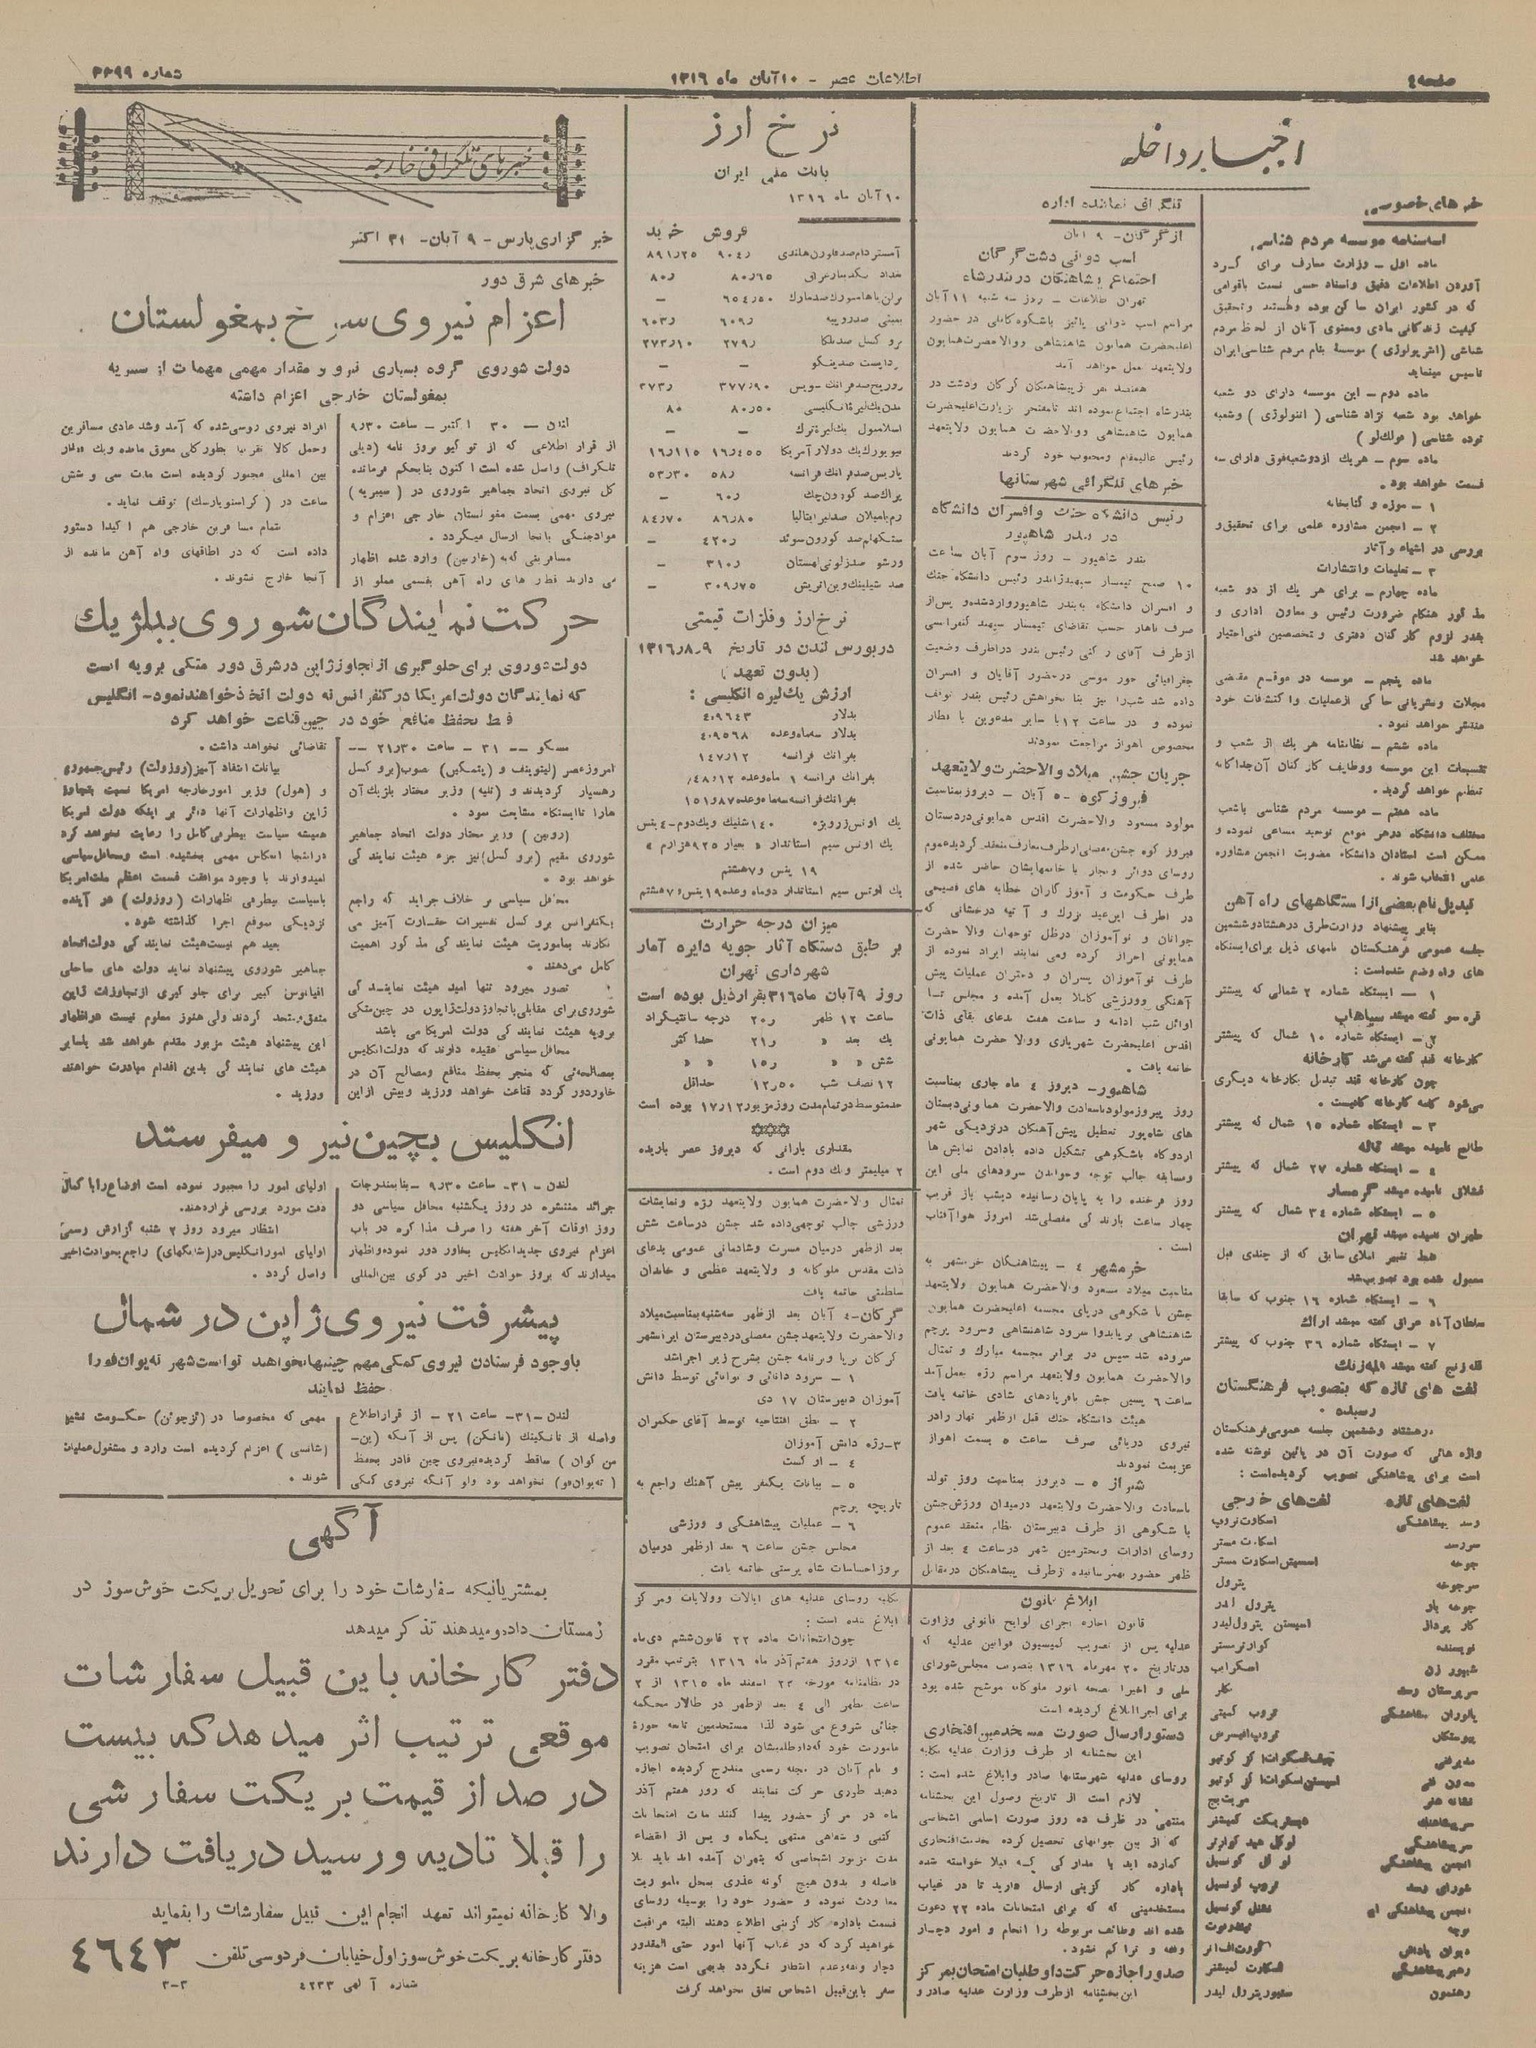 صفحه ٤
اطلاعات عصر - ١٠ آبان ماه ١٣١٦
شماره ٣٣٩٩
اخبار داخله
خبرهای خصوصی
اساسنامه موسسه مردم شناسی
ماده اول - وزارت معارف برای گرد
آوردن اطلاعات دقیق واسناد حسی نسبت باقوامی
که در کشور ایران ساکن بوده وهستند وتحقیق
کیفیت زندگانی مادی ومعنوی آنان از لحاظ مردم
شناسی (انتروپولوژی) موسسهٔ بنام مردم شناسی ایران
تاسیس مینماید
ماده دوم - این موسسه دارای دو شعبه
خواهد بود شعبه نژاد شناسی (اتنولوژی) وشعبه
توده شناسی (فولکلور)
ماده سوم - هریک از دو شعبه فوق دارای سه
قسمت خواهد بود.
١ - موزه و کتابخانه
٢ - انجمن مشاوره علمی برای تحقیق و
بررسی در اشیاء و آثار
٣ - تعلیمات وانتشارات
ماده چهارم - برای هر یک از دو شعبه
مذکور هنگام ضرورت رئیس و معاون اداری و
بقدر لزوم کارکنان دفتری و متخصصین فنی اختیار
خواهد شد
ماده پنجم - موسسه در موقع مقتضی
مجلات ونشریاتی حاکی از عملیات واکتشافات خود
منتشر خواهد نمود.
ماده ششم - نظامنامه هر یک از شعب و
تقسیمات این موسسه ووظایف کارکنان آن جداگانه
تنظیم خواهد گردید.
ماده هفتم - موسسه مردم شناسی باشعب
مختلف دانشگاه در هر موقع توحید مساعی نموده و
ممکن است استادان دانشگاه بعضویت انجمن مشاوره
علمی انتخاب شوند.
تبدیل نام بعضی از ایستگاههای راه آهن
بنابر پیشنهاد وزارت طرق در هشتاد وششمین
جلسه عمومی فرهنگستان نامهای ذیل برای ایستگاه
های راه وضع شده است:
١ - ایستگاه شماره ٢ شمالی که پیشتر
قره سو گفته میشد سیاهاب
٢ - ایستگاه شماره ١٠ شمال که پیشتر
کارخانه قند گفته می‌شد کارخانه
چون کارخانه قند تبدیل بکارخانه دیگری
می‌شود کلمه کارخانه کافیست.
٣ - ایستگاه شماره ١٥ شمال که پیشتر
طالع نامیده میشد تاله
٤ - ایستگاه شماره ٢٧ شمال که پیشتر
قشلاق نامیده میشد گرمسار
٥ - ایستگاه شماره ٣٤ شمال که پیشتر
طهران نامیده میشد تهران
فقط تغییر املای سابق که از چندی قبل
معمول شده بود تصویب شد
٦ - ایستگاه شماره ١٦ جنوب که سابقا
سلطان‌آباد عراق گفته میشد اراک
٧ - ایستگاه شماره ٣٦ جنوب که پیشتر
لغت های تازه که بتصویب فرهنگستان
رسیده.
در هشتاد وششمین جلسه عمومی فرهنگستان
واژه هائی که صورت آن در پائین نوشته شده
است برای پیشاهنگی تصویب گردیده است:
لغت‌های تازه لغت‌های خارجی
رسد پیشاهنگی اسکاوت تروپ
سررسد اسکاوت مستر
جوخه پترول
کار پرداز
نویسنده کوارترمستر
شیپور زن
یاوران پیشاهنگی گروپ کمیتی
سرپیشاهنگ دیستریکت کمیشنر
سرپیشاهنگی لوکل هید کوارتر
انجمن پیشاهنگی لوکال کونسیل
شورای رسد تروپ کونسیل
دیوان پاداش کورت اف انر
رهبر پیشاهنگی اسکاوت کمیشنر
رهنمون سنیور پترول لیدر
تلگراف نماینده اداره
از گرگان - ٩ آبان
اسب دوانی دشت گرگان
اجتماع پیشاهنگان در بندرشاه
تهران اطلاعات - روز سه شنبه ١١ آبان
مراسم اسب دوانی پائیز باشکوه کاملی در حضور
اعلیحضرت همایون شاهنشاهی ووالاحضرت همایون
ولایتعهد بعمل خواهد آمد
هفتصد نفر از پیشاهنگان گرگان ودشت در
بندرشاه اجتماع نموده اند تا مفتخر بزیارت اعلیحضرت
همایون شاهنشاهی ووالاحضرت همایون ولایتعهد
رئیس عالیمقام ومحبوب خود گردند
خبرهای تلگرافی شهرستانها
رئیس دانشگاه جنگ وافسران دانشگاه
در بندر شاهپور
بندر شاهپور - روز سوم آبان ساعت
١٠ صبح تیمسار سپهبد ژاندر رئیس دانشگاه جنگ
و افسران دانشگاه به بندر شاهپور وارد شده و پس از
صرف ناهار حسب تقاضای تیمسار سپهبد کنفرانسی
از طرف آقای رکنی رئیس بندر در اطراف وضعیت
جغرافیائی خور موسی در حضور آقایان و افسران
داده شد شب را نیز بنا بخواهش رئیس بندر توقف
نموده و در ساعت ١٢ با سایر مدعوین با قطار
مخصوص اهواز مراجعت نمودند
جریان جشن میلاد والاحضرت ولایتعهد
فیروزکوه - ٥ آبان - دیروز بمناسبت
مولود مسعود والاحضرت اقدس همایونی در دبستان
فیروز کوه جشن مفصلی از طرف معارف منعقد گردید عموم
روسای دوائر و تجار با خانمهایشان حاضر شده از
طرف حکومت و آموزگاران خطابه های فصیحی
در اطراف این عید بزرگ و آتیه درخشانی که
جوانان و نوآموزان در ظل توجهات والاحضرت
همایونی احراز کرده ومی نمایند ایراد نموده از
طرف نوآموزان پسران و دختران عملیات پیش
آهنگی و ورزشی کاملا بعمل آمده و مجلس تا
اوائل شب ادامه و ساعت هفت بدعای بقای ذات
اقدس اعلیحضرت شهریاری ووالاحضرت همایونی
خاتمه یافت.
شاهپور - دیروز ٤ ماه جاری بمناسبت
روز پیروز مولود باسعادت والاحضرت همایونی دبستان
های شاه‌پور تعطیل پیش‌آهنگان در نزدیکی شهر
اردوگاه باشکوهی تشکیل داده بادادن نمایش ها
ومسابقه جالب توجه وخواندن سرودهای ملی این
روز فرخنده را به پایان رسانیده دیشب باز قریب
چهار ساعت بارندگی مفصلی شد امروز هوا آفتاب
است.
خرمشهر ٤ - پیشاهنگان خرمشهر به
مناسبت میلاد مسعود والاحضرت همایون ولایتعهد
جشن باشکوهی در پای مجسمه اعلیحضرت همایون
شاهنشاهی برپا بدوا سرود شاهنشاهی وسرود پرچم
سروده شد سپس در برابر مجسمه مبارک و تمثال
والاحضرت همایون ولایتعهد مراسم رژه بعمل آمد
ساعت ٦ پسین جشن بافریادهای شادی خاتمه یافت
هیئت دانشگاه جنگ قبل از ظهر نهار را در
نیروی دریائی صرف ساعت ٥ بسمت اهواز
عزیمت نمودند
شیراز ٥ - دیروز بمناسبت روز تولد
باسعادت والاحضرت ولایتعهد در میدان ورزش جشن
باشکوهی از طرف دبیرستان نظام منعقد عموم
روسای ادارات ومحترمین شهر در ساعت ٤ بعد از
ظهر حضور بهمرسانیده از طرف پیشاهنگان در مقابل
ابلاغ قانون
قانون اجازه اجرای لوایح قانونی وزارت
عدلیه پس از تصویب کمیسیون قوانین عدلیه که
در تاریخ ٢٠ مهرماه ١٣١٦ بتصویب مجلس شورای
ملی و اخیرا بصحه انور ملوکانه موشح شده بود
برای اجرا ابلاغ گردیده است
دستور ارسال صورت مستخدمین افتخاری
این بخشنامه از طرف وزارت عدلیه بکلیه
روسای عدلیه شهرستانها صادر وابلاغ شده است:
لازم است از تاریخ وصول این بخشنامه
منتهی در ظرف ده روز صورت اسامی اشخاصی
که از بین جوانهای تحصیل کرده بخدمت افتخاری
گمارده اید با مدارکی که قبلا خواسته شده
باداره کار گزینی ارسال دارید تا در غیاب
مستخدمینی که برای امتحانات ماده ٢٢ دعوت
شده اند وظائف مربوطه را انجام و امور دچار
وقفه و تراکم نشود.
صدور اجازه حرکت داوطلبان امتحان بمرکز
این بخشنامه از طرف وزارت عدلیه صادر و
نرخ ارز
بانک ملی ایران
١٠ آبان ماه ١٣١٦
فروش خرید
آمستردام صد فلورن هلندی ٩٠٤ر ٨٩١ر٢٥
بغداد یکدینار عراقی ٨٠ر٦٥ ٨٠ر
برلن یا هامبورک صد مارک ٦٥٤ر٥٠ -
بمبئی صد روپیه ٦٠٩ر ٦٠٣ر
بروکسل صد بلگا ٢٧٩ر ٢٧٣ر١٠
بوداپست صد پنگو - -
زوریخ صد فرانک سویس ٣٧٧ر٩٠ ٣٧٣ر
لندن یک لیره انگلیسی ٨٠ر٥٠ ٨٠
اسلامبول یک لیره ترک - -
نیویورک یک دولار آمریکا ١٦ر٤٥٥ ١٦ر١١٥
پاریس صد فرانک فرانسه ٥٨ر ٥٣ر٣٠
پراک صد کورون چک ٦٠ر -
رم یا میلان صد لیر ایتالیا ٨٦ر٨٠ ٨٤ر٧٠
ستکهلم صد کورون سوئد ٤٢٠ر -
ورشو صد زلوتی لهستان ٣١٠ر -
صد شیلینک وین اتریش ٣٠٩ر٧٥ -
نرخ ارز وفلزات قیمتی
در بورس لندن در تاریخ ١٣١٦٫٨٫٩
(بدون تعهد)
ارزش یک لیره انگلیسی:
بدلار ٤٫٩٦٤٣
بدلار سه ماه وعده ٤٫٩٥٦٨
بفرانک فرانسه ١٤٧٫١٢
بفرانک فرانسه ١ ماه وعده ١٤٨٫١٢
بفرانک فرانسه سه ماه وعده ١٥١٫٨٧
یک اونس زر ویژه ١٤٠ شلینک و یک دوم - ٤ پنس
یک اونس سیم استاندارد «بعیار ٩٢٥ هزارم»
١٩ پنس و ٧ هشتم
یک اونس سیم استاندار دوماه وعده ١٩ پنس و ٧ هشتم
میزان درجه حرارت
بر طبق دستگاه آثار جویه دایره آمار
شهرداری تهران
روز ٩ آبان ماه ٣١٦ بقرار ذیل بوده است
ساعت ١٢ ظهر ٢٠ر درجه سانتیگراد
یک بعد » ٢١ر حداکثر
شش » ١٥ر » »
١٢ نصف شب ١٢ر٥٠ حداقل
حد متوسط در تمام مدت روز مزبور ١٧ر١٢ بوده است
مقداری بارانی که دیروز عصر باریده
٢ میلیمتر و یک دوم است.
تمثال والاحضرت همایون ولایتعهد رژه ونمایشات
ورزشی جالب توجهی داده شد جشن در ساعت شش
بعد از ظهر درمیان مسرت وشادمانی عمومی بدعای
ذات مقدس ملوکانه و ولایتعهد عظمی و خاندان
سلطنتی خاتمه یافت
گرگان - ٤ آبان بعد از ظهر سه شنبه بمناسبت میلاد
والاحضرت ولایتعهد جشن مفصلی در دبیرستان ایرانشهر
گرگان برپا و برنامه جشن بشرح زیر اجرا شد
١ - سرود دانائی و توانائی توسط دانش
آموزان دبیرستان ١٧ دی
٢ - نطق افتتاحیه توسط آقای حکمران
٣ - رژه دانش آموزان
٤ - ارکست
٥ - بیانات یکنفر پیش آهنگ راجع به
تاریخچه پرچم
٦ - عملیات پیشاهنگی و ورزشی
مجلس جشن ساعت ٦ بعد از ظهر درمیان
بروز احساسات شاه پرستی خاتمه یافت.
بکلیه روسای عدلیه های ایالات وولایات ومرکز
ابلاغ شده است:
چون امتحانات ماده ٢٢ قانون ششم دی‌ماه
١٣١٥ از روز هفتم آذر ماه ١٣١٦ بترتیب مقرر
در نظامنامه مورخه ٢٣ اسفند ماه ١٣١٥ از ٢
ساعت بظهر الی ٤ بعد از ظهر در طالار محکمه
جنائی شروع می شود لذا مستخدمین تابعه حوزهٔ
ماموریت خود که داوطلبیشان برای امتحان تصویب
و نام آنان در مجله رسمی مندرج گردیده اجازه
دهید طوری حرکت نمایند که روز هفتم آذر
ماه در مرکز حضور پیدا کنند مدت امتحانات
کتبی و شفاهی منتهی یکماه و پس از انقضاء
مدت مزبور اشخاصی که بتهران آمده اند باید بلا
فاصله و بدون هیچ گونه عذری بمحل ماموریت
معاودت نموده و حضور خود را بوسیله روسای
قسمت باداره کار گزینی اطلاع دهند البته مراقبت
خواهید کرد که در غیاب آنها امور حتی المقدور
دچار وقفه وعدم انتظار نگردد بدیهی است هزینه
سفر باین قبیل اشخاص تعلق نخواهد گرفت
خبرهای تلگرافی خارجه
خبرگزاری پارس - ٩ آبان - ٣١ اکتبر
خبرهای شرق دور
اعزام نیروی سرخ بمغولستان
دولت شوروی گروه بسیاری نیرو و مقدار مهمی مهمات از سیبریه
بمغولستان خارجی اعزام داشته
لندن - ٣٠ اکتبر - ساعت ٩٫٣٠
از قرار اطلاعی که از توکیو بروز نامه (دیلی
تلگراف) واصل شده است اکنون بنابحکم فرمانده
کل نیروی اتحاد جماهیر شوروی در (سیبریه)
نیروی مهمی بسمت مغولستان خارجی اعزام و
مواد جنگی بانجا ارسال میگردد.
مسافرینی که به (خاربین) وارد شده اظهار
می دارند قطار های راه آهن بقسمی مملو از
افراد نیروی روسی شده که آمد وشد عادی مسافرین
وحمل کالا تقریبا بطور کلی معوق مانده ویک قطار
بین المللی مجبور گردیده است مدت سی و شش
ساعت در (کراسنویارسک) توقف نماید.
تمام مسافرین خارجی هم اکیدا دستور
داده است که در اطاقهای راه آهن مانده از
آنجا خارج نشوند.
حرکت نمایندگان شوروی ببلژیک
دولت شوروی برای جلوگیری از تجاوز ژاپن در شرق دور متکی برویه است
که نمایندگان دولت امریکا در کنفرانس نه دولت اتخاذ خواهند نمود - انگلیس
فقط بحفظ منافع خود در چین قناعت خواهد کرد
مسکو - ٣١ - ساعت ٢١٫٣٠ -
امروز عصر (لیتوینف و (پتمکین) بصوب (بروکسل
رهسپار گردیدند و (تلیه) وزیر مختار بلژیک آن
هارا تا ایستگاه مشایعت نمود.
(روبین) وزیر مختار دولت اتحاد جماهیر
شوروی مقیم (بروکسل) نیز جزء هیئت نمایندگی
خواهد بود.
محافل سیاسی بر خلاف جراید که راجع
بکنفرانس بروکسل تفسیرات حقارت آمیز می
نگارند بماموریت هیئت نمایندگی مذکور اهمیت
کامل می‌دهند.
تصور میرود تنها امید هیئت نمایندگی
شوروی برای مقابلی با تجاوز دولت ژاپون در چین متکی
برویه هیئت نمایندگی دولت امریکا می باشد
محافل سیاسی عقیده دارند که دولت انگلیس
بمصالحه‌ئی که منجر بحفظ منافع ومصالح آن در
خاور دور گردد قناعت خواهد ورزید وبیش از این
تقاضائی نخواهد داشت.
بیانات انتقاد آمیز (روزولت) رئیس جمهوری
و (هول) وزیر امور خارجه امریکا نسبت بتجاوز
ژاپن واظهارات آنها دائر بر اینکه دولت امریکا
همیشه سیاست بیطرفی کامل را رعایت نخواهد کرد
در اینجا انعکاس مهمی بخشیده است ومحافل سیاسی
امیدوارند با وجود موافقت قسمت اعظم ملت امریکا
باسیاست بیطرفی اظهارات (روزولت) در آینده
نزدیکی بموقع اجرا گذاشته شود.
بعید هم نیست هیئت نمایندگی دولت اتحاد
جماهیر شوروی پیشنهاد نماید دولت های ساحلی
اقیانوس کبیر برای جلوگیری از تجاوزات ژاپن
متفق ومتحد گردند ولی هنوز معلوم نیست در اظهار
این پیشنهاد هیئت مزبور مقدم خواهد شد یاسایر
هیئت های نمایندگی بدین اقدام مبادرت خواهند
ورزید.
انگلیس بچین نیرو میفرستد
لندن - ٣١ - ساعت ٩٫٣٠ - بنابمندرجات
جرائد منتشره در روز یکشنبه محافل سیاسی دو
روز اوقات آخر هفته را صرف مذاکره در باب
اعزام نیروی جدید انگلیس بخاور دور نموده واظهار
میدارند که بروز حوادث اخیر در کوی بین‌المللی
اولیای امور را مجبور نموده است اوضاع را با کمال
دقت مورد بررسی قرار دهند.
انتظار میرود روز ٢ شنبه گزارش رسمی
اولیای امور انگلیس در (شانگهای) راجع بحوادث اخیر
واصل گردد.
پیشرفت نیروی ژاپن در شمال
باوجود فرستادن نیروی کمکی مهم چینیها نخواهند توانست شهر ته‌یوان‌فو را
حفظ نمایند
لندن - ٣١ - ساعت ٢١ - از قرار اطلاع
واصله از نانکینک (نانکن) پس از آنکه (ین-
من کوان) ساقط گردیده نیروی چین قادر بحفظ
(ته‌یوان‌فو) نخواهد بود ولو آنکه نیروی کمکی
مهمی که مخصوصا در (ئزچوئن) حکومت نشین
(شانسی) اعزام گردیده است وارد و مشغول عملیات
شوند.
آگهی
بمشتریانیکه سفارشات خود را برای تحویل بریکت خوش سوز در
زمستان داده ومیدهند تذکر میدهد
دفتر کارخانه باین قبیل سفارشات
موقعی ترتیب اثر میدهد که بیست
در صد از قیمت بریکت سفارشی
را قبلا تادیه ورسید دریافت دارند
والا کارخانه نمیتواند تعهد انجام این قبیل سفارشات را بنماید
دفتر کارخانه بریکت خوش سوز اول خیابان فردوسی تلفن ٤٦٤٣
شماره آگهی ٤٢٣٣
٣-٢